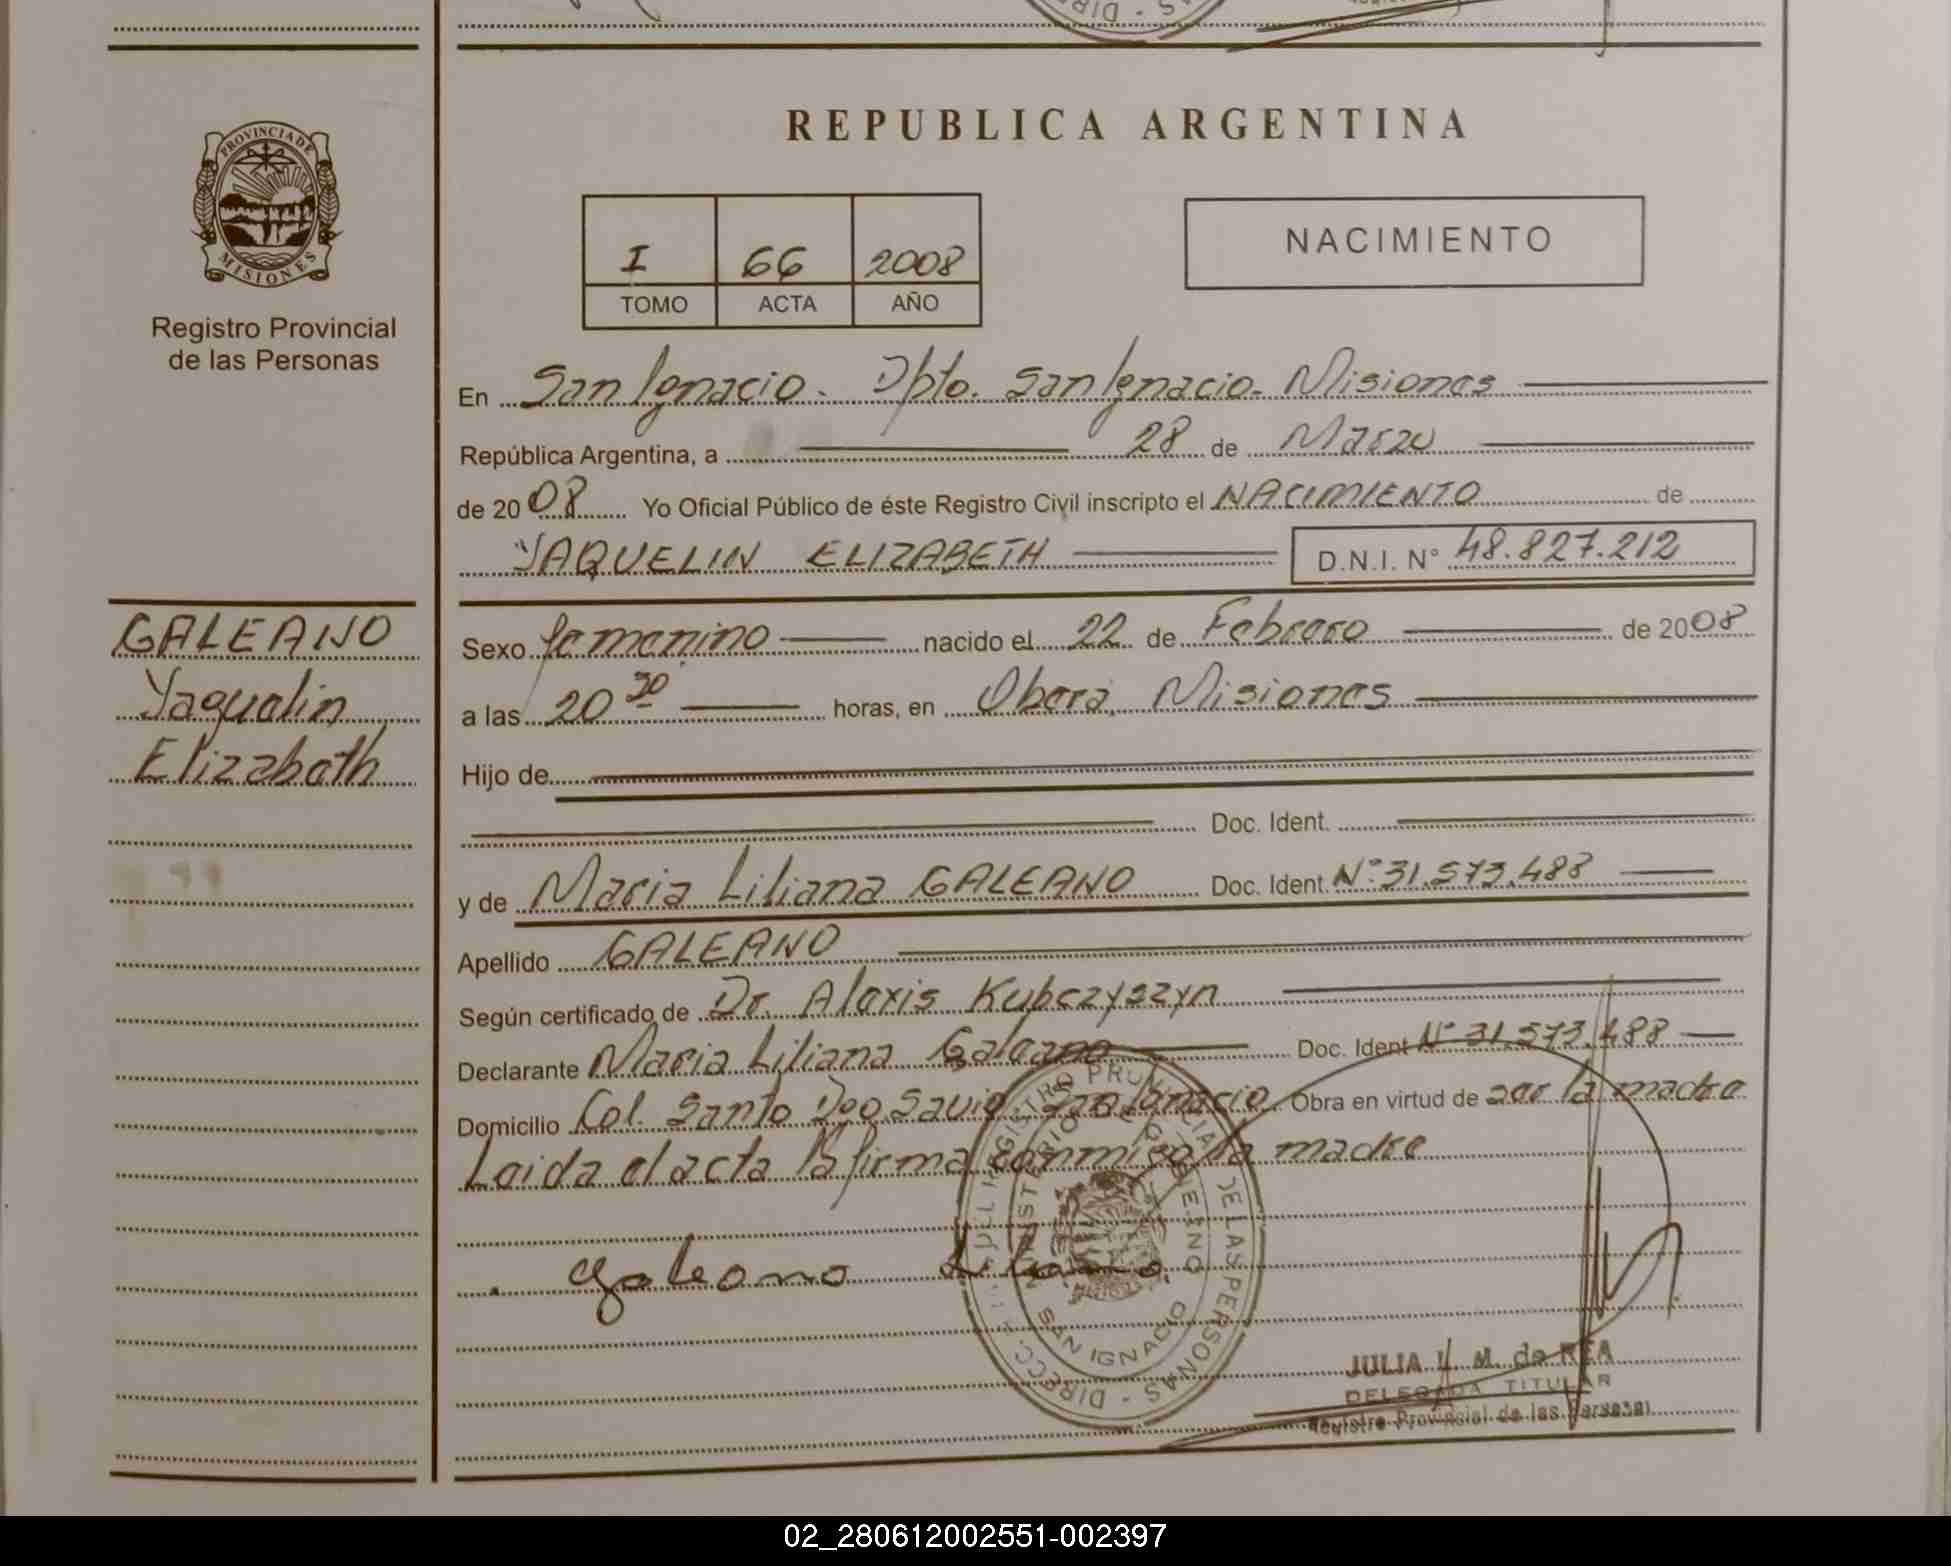 REPUBLICA ARGENTINA
PROVINCIA DE
MISIONES
Registro Provincial
de las Personas
I 66 2008
TOMO ACTA AÑO
NACIMIENTO
En San Ignacio - Dpto. San Ignacio - Misiones
República Argentina, a 28 de Marzo
de 2008 Yo Oficial Público de éste Registro Civil inscripto el NACIMIENTO de
YAQUELIN ELIZABETH D.N.I. N° 48.827.212
GALEANO
Yaquelin
Elizabeth
Sexo femenino nacido el 22 de Febrero de 2008
a las 20 30 horas, en Oberá, Misiones
Hijo de
Doc. Ident.
y de Maria Liliana GALEANO Doc. Ident. N° 31.573.488
Apellido GALEANO
Según certificado de Dr. Alexis Kubczyszyn
Declarante Maria Liliana Galeano Doc. Ident N° 31.573.488
Domicilio Col. Santo Dgo Savio San Ignacio Obra en virtud de ser la madre
Leida el acta la firma conmigo la madre
Galeano Liliana
REGISTRO PROVINCIAL DE LAS PERSONAS - DIRECC.
MINISTERIO DE GOBIERNO
SAN IGNACIO
JULIA L. M. de REA
DELEGADA TITULAR
Registro Provincial de las Personas
02_280612002551-002397